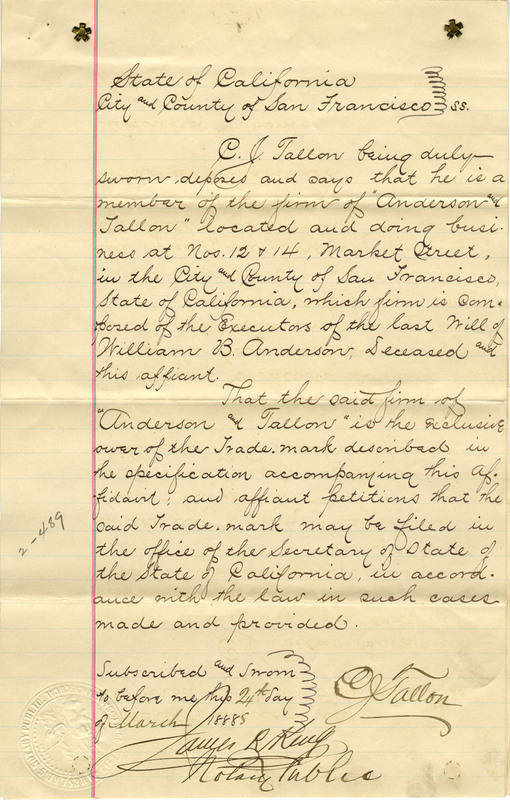 State of California
City and County of San Francisco ss.
C. J. Tallon being duly
sworn deposes and says that he is a
member of the firm of "Anderson and
Tallon" located and doing busi-
ness at Nos. 12 & 14, Market Street,
in the City and County of San Francisco,
State of California, which firm is com-
posed of the Executors of the last Will of
William B. Anderson, Deceased and
this affiant.
That the said firm of
"Anderson and Tallon" is the exclusive
ower of the Trade-mark described in
the specification accompaning this af-
fidavit; and affiant petitions that the
said Trade-mark may be filed in
the office of the Secretary of State of
the State of California, in accord-
ance with the law in such cases
made and provided.
2-489
Subscribed and Sworn
to before me this 24th day
of March 1888
C J Tallon
James R.
Notary Public